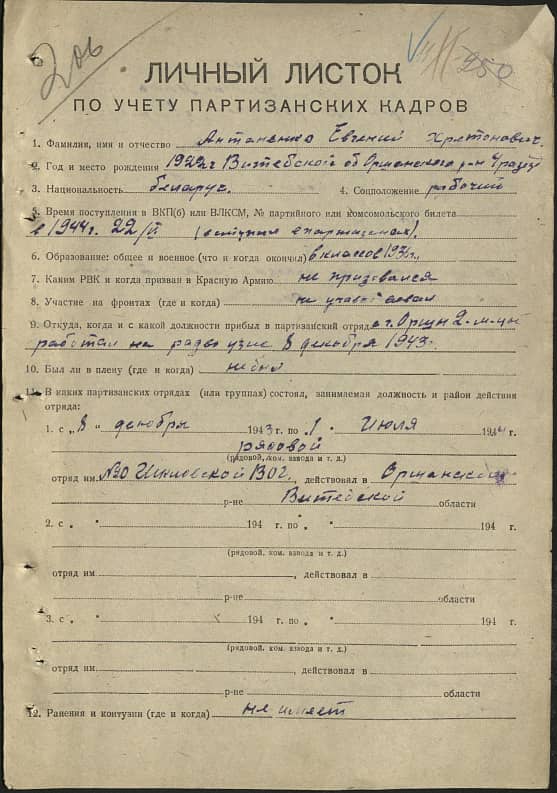 206
250
ЛИЧНЫЙ ЛИСТОК
ПО УЧЕТУ ПАРТИЗАНСКИХ КАДРОВ
1. Фамилия, имя и отчество Антаненко Евгений
2. Год и место рождения 1922г Витебской об Оршанского р-н
3. Национальность беларус. 4. Соцположение рабочий
5. Время поступления в ВКП(б) или ВЛКСМ, № партийного или комсомольского билета
в 1944г. 22/
6. Образование: общее и военное (что и когда окончил) 6 классов
7. Каким РВК и когда призван в Красную Армию не призвался
8. Участие на фронтах (где и когда) не участвовал
9. Откуда, когда и с какой должности прибыл в партизанский отряд с г. Орши
работал на 8 декабря 1943г.
10. Был ли в плену (где и когда) не был
11. В каких партизанских отрядах (или группах) состоял, занимаемая должность и район действия
отряда:
1. с „8 " декабря 1943 г. по „1 " Июля 194 г.
рядовой
(рядовой, ком. взвода и т. д.)
отряд им. , действовал в Оршанском
р-не Витебской области
2. с „ " 194 г. по „ " 194 г.
(рядовой, ком. взвода и т. д.)
отряд им. , действовал в
р-не области
3. с „ " 194 г. по „ " 194 г.
(рядовой, ком. взвода и т. д.)
отряд им. , действовал в
р-не области
12. Ранения и контузии (где и когда) не имеет